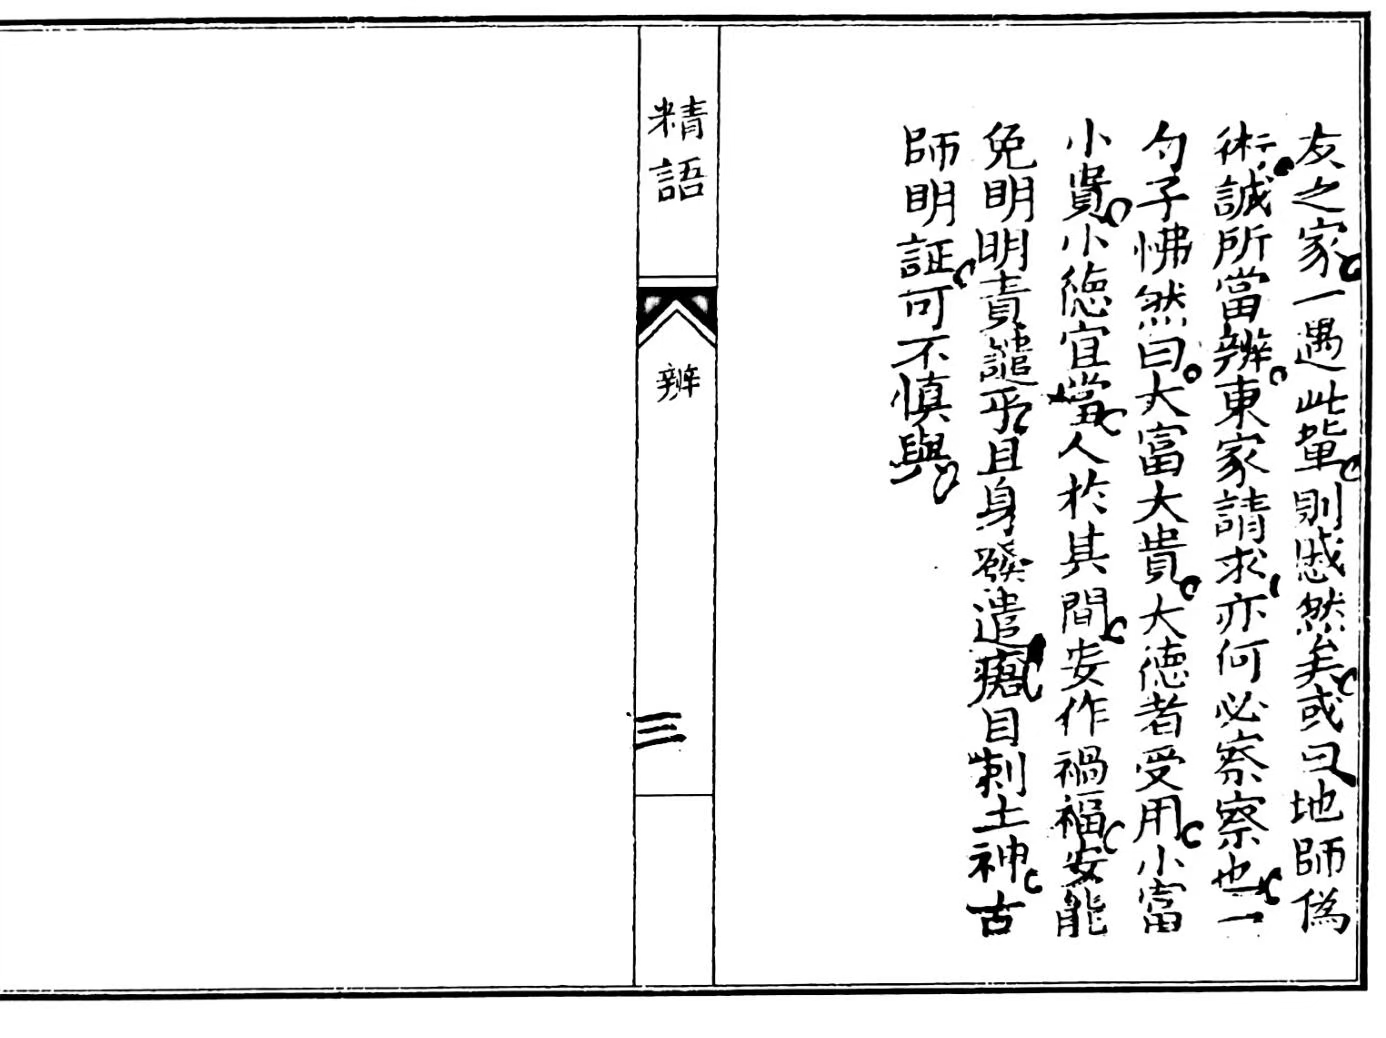 友之家一遇此輩則戚然矣或曰地師偽
術誠所當辨東家請求亦何必察察也一
勺子怫然曰大富大貴大德者受用小富
小貴小德宜當人於其間妄作禍福安能
免明明責譴乎且身發遣瘢目刺土神古
師明証可不慎與
精語
辨
三